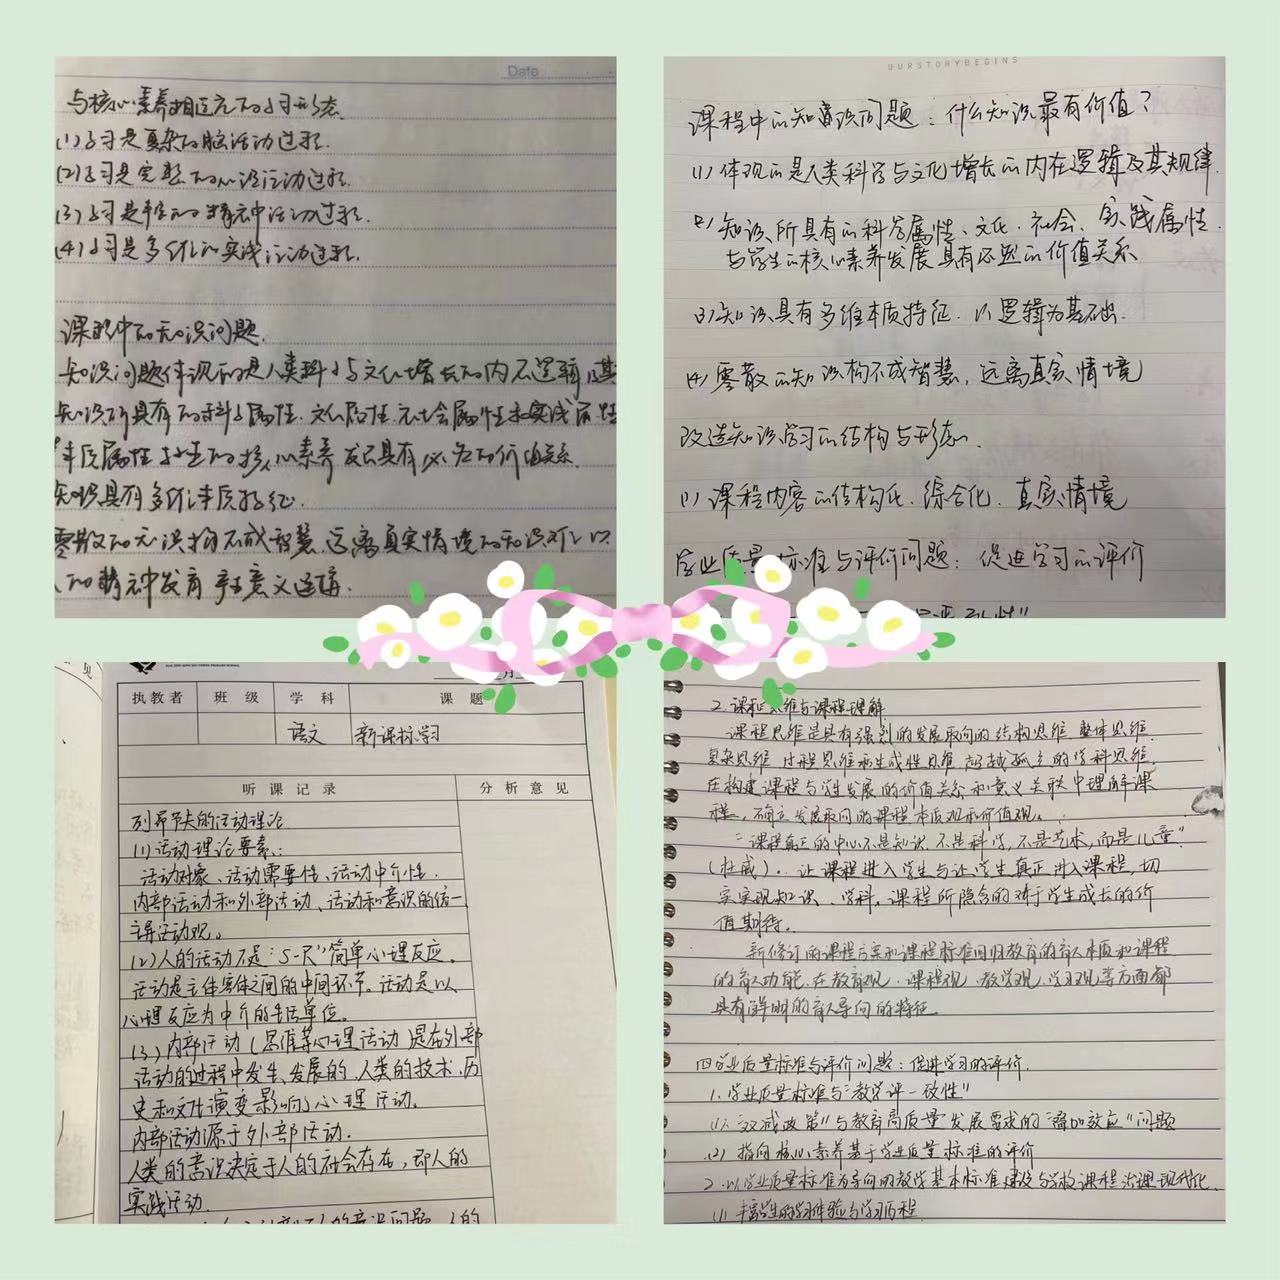 Date
与核心素养相适应的学习形态
(1)学习是复杂的脑活动过程.
(2)学习是完整的心理活动过程.
(3)学习是 的精神活动过程.
(4)学习是多 的实践活动过程.
课程中的知识问题.
知识问题体现的是人类科学与文化增长的内在逻辑及其
知识所具有的科学属性.文化属性.社会属性和实践属性
本质属性 学生的核心素养发展具有必然的价值关系.
知识具有多维本质特征.
零散的知识构不成智慧.远离真实情境的知识难以
人的精神发育产生意义连接.
OURSTORYBEGINS
课程中的知识问题：什么知识最有价值？
(1)体现的是人类科学与文化增长的内在逻辑及其规律.
(2)知识所具有的科学属性、文化、社会、实践属性.
与学生的核心素养发展具有必然的价值关系
(3)知识具有多维本质特征.以逻辑为基础.
(4)零散的知识构不成智慧,远离真实情境
改造知识学习的结构与形态.
(1)课程内容的结构化.综合化.真实情境
学业质量标准与评价问题：促进学习的评价
见
月
执教者 班级 学科 课题
语文 新课标学习
听课记录 分析意见
列昂节夫的活动理论
(1)活动理论要素：
活动对象、活动需要性、活动中介性.
内部活动和外部活动、活动和意识的统一
主导活动观。
(2)人的活动不是"S-R"简单心理反应。
活动是主体客体之间的中间环节。活动是以
心理反应为中介的生活单位。
(3)内部活动(思维等心理活动)是在外部
活动的过程中发生、发展的,人类的技术、历
史和文化演变影响心理活动。
内部活动源于外部活动.
人类的意识决定于人的社会存在,即人的
实践活动.
2.课程思维与课程理解
课程思维是具有强烈的发展取向的结构思维、整体思维、
复杂思维、过程思维和生成性思维,超越孤立的学科思维,
在构建课程与学生发展的价值关系和意义关联中理解课
程,确立发展取向的课程本质观和价值观。
"课程真正的中心不是知识,不是科学,不是艺术,而是儿童"
(杜威)。让课程进入学生与让学生真正进入课程,切
实实现知识、学科、课程所隐含的对于学生成长的价
值期待。
新修订的课程方案和课程标准回归教育的育人本质和课程
的育人功能,在教育观、课程观、教学观、学习观等方面都
具有鲜明的育人导向的特征.
四学业质量标准与评价问题：促进学习的评价.
1.学业质量标准与"教学评一致性"
(1)"双减政策"与教育高质量发展要求的"叠加效应"问题
(2)指向核心素养基于学业质量标准的评价
2.以学业质量标准为导向的教学基本标准建设与学校课程治理现代化.
(1)丰富学生的学习体验与学习历程